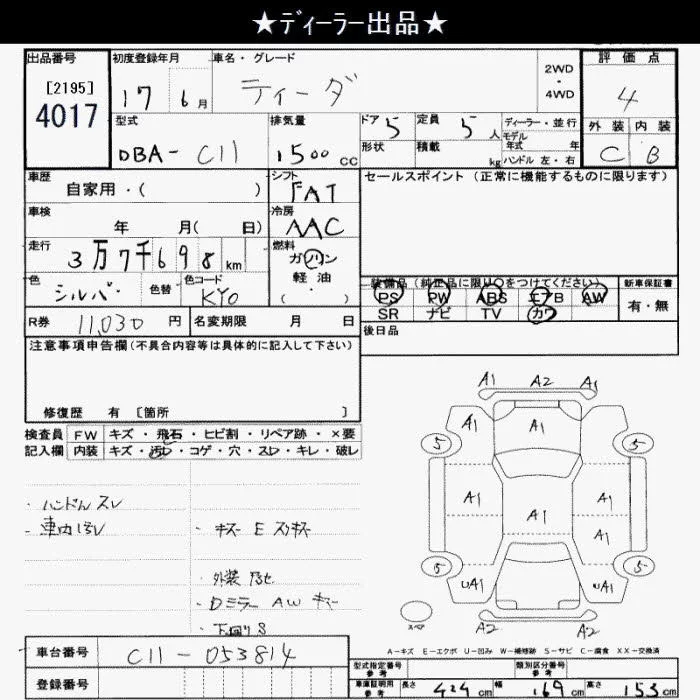 ★ディーラー出品★
出品番号 初度登録年月 車名・グレード 2WD・4WD 評価点
[2195]
4017
17 6月 ティーダ 4
型式 排気量 ドア 5 定員 5人 ディーラー・並行 外装 内装
モデル年式 年
DBA- C11 1500cc 形状 積載 kg ハンドル 左・右 C B
車歴 シフト セールスポイント (正常に機能するものに限ります)
自家用・( ) FAT
車検 冷房
年 月( 日) AAC
走行 燃料
3万7千698km ガソリン
軽油
( ・ )
色 シルバー 色替 色コード KY0
装備品(純正品に限り○をつけてください) 新車保証書
PS PW ABS エアB AW 有・無
SR ナビ TV カワ
R券 11,030円 名変期限 月 日
後日品
注意事項申告欄(不具合内容等は具体的に記入して下さい)
修復歴 有 [箇所 ]
検査員 FW キズ・飛石・ヒビ割・リペア跡・×要
記入欄 内装 キズ・汚レ・コゲ・穴・スレ・キレ・破レ
A1 A2 A1
A1 A1
5 5
A1 A1 A1
A1
5 5
UA1 UA1
A2 A2
スペア
・ハンドルスレ
・車内汚レ
・キズ E スリキズ
・外装
・Dミラー AW キズ
・下回りS
A-キズ E-エクボ U-凹み W-補修跡 S-サビ C-腐食 XX-交換済
車台番号 C11-053814
登録番号
型式指定番号 参考 類別区分番号 参考
車庫証明用 参考 長さ 424cm 幅 169cm 高さ 153cm